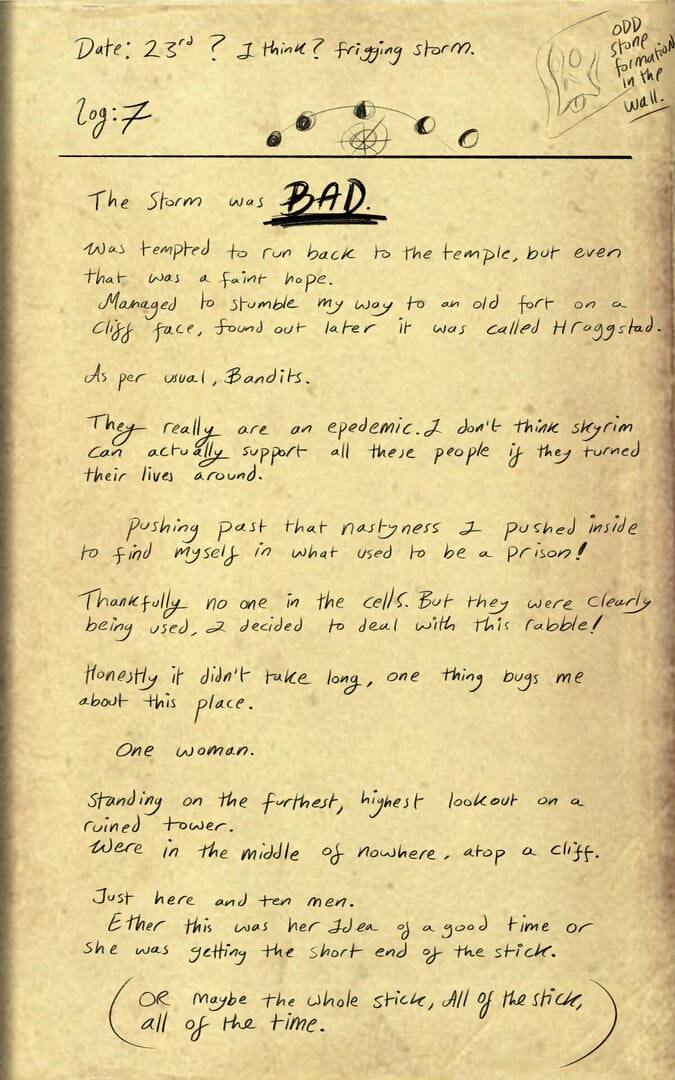 Date: 23rd ? I think? frigging storm.
ODD
stone
formation
in the
wall.
Log: 7
The Storm was BAD.
Was tempted to run back to the temple, but even
that was a faint hope.
Managed to stumble my way to an old fort on a
cliff face, found out later it was called Hraggstad.
As per usual, Bandits.
They really are an epedemic. I don't think skyrim
can actually support all these people if they turned
their lives around.
Pushing past that nastyness I pushed inside
to find myself in what used to be a prison!
Thankfully no one in the cells. But they were clearly
being used, I decided to deal with this rabble!
Honestly it didn't take long, one thing bugs me
about this place.
One woman.
Standing on the furthest, highest lookout on a
ruined tower.
Were in the middle of nowhere, atop a cliff.
Just here and ten men.
Ether this was her Idea of a good time or
she was getting the short end of the stick.
(OR maybe the whole stick, All of the stick,
all of the time.)